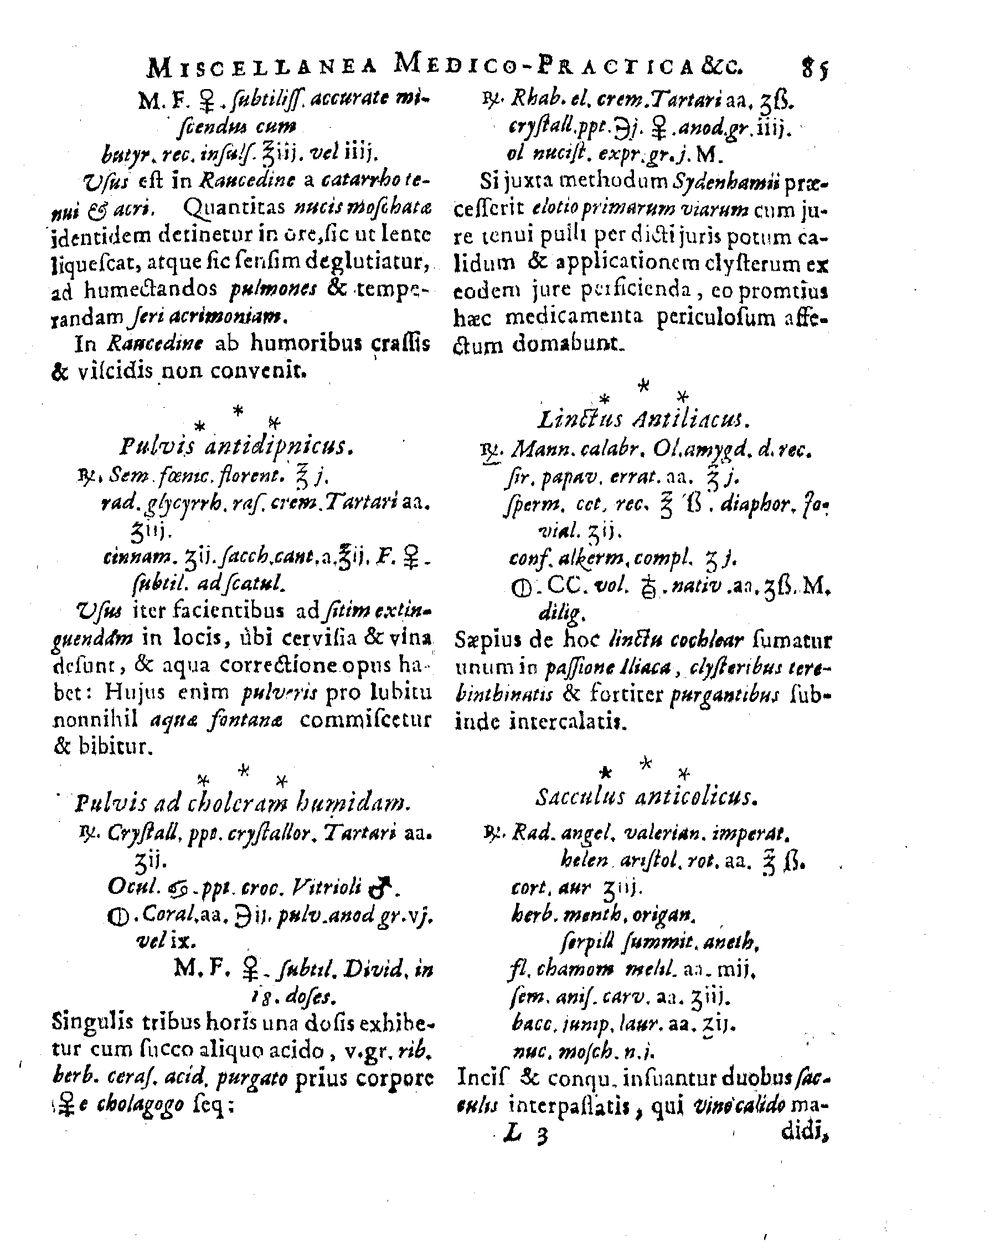 MISCELLANEA MEDICO-PRACTICA &c. 85
M. F. ♀. ſubtiliſſ. accurate mi-
ſcendus cum
butyr. rec. inſulſ. ℥iij. vel iiij.
Uſus eſt in Raucedine a catarrho te-
nui & acri. Quantitas nucis moſchatæ
identidem detinetur in ore, ſic ut lente
liqueſcat, atque ſic ſenſim deglutiatur,
ad humectandos pulmones & tempe-
randam ſeri acrimoniam.
In Raucedine ab humoribus craſſis
& viſcidis non convenit.
* * *
Pulvis antidipnicus.
℞. Sem. fœnic. florent. ℥ j.
rad. glycyrrh. raſ. crem. Tartari aa.
ʒiij.
cinnam. ʒij. ſacch. cant. a. ℥ij. F. ♀.
ſubtil. ad ſcatul.
Uſus iter facientibus ad ſitim extin-
guendam in locis, ubi cerviſia & vina
deſunt, & aqua correctione opus ha-
bet: Hujus enim pulveris pro lubitu
nonnihil aquæ fontanæ commiſcetur
& bibitur.
* * *
Pulvis ad choleram humidam.
℞. Cryſtall. ppt. cryſtallor. Tartari aa.
ʒij.
Ocul. ♋. ppt. croc. Vitrioli ♂.
🜔. Coral. aa. ℈ij. pulv. anod gr. vj.
vel ix.
M. F. ♀. ſubtil. Divid. in
ig. doſes.
Singulis tribus horis una doſis exhibe-
tur cum ſucco aliquo acido, v. gr. rib.
berb. ceraſ. acid. purgato prius corpore
♀e cholagogo ſeq:
℞. Rhab. el. crem. Tartari aa. ʒß.
cryſtall. ppt. ℈j. ♀. anod. gr. iiij.
ol nuciſt. expr. gr. j. M.
Si juxta methodum Sydenhamii præ-
ceſſerit elotio primarum viarum cum ju-
re tenui pulli per dicti juris potum ca-
lidum & applicationem clyſterum ex
eodem jure perficienda, eo promtius
hæc medicamenta periculoſum affe-
ctum domabunt.
* * *
Linctus Antiliacus.
℞. Mann. calabr. Ol. amygd. d. rec.
ſir. papav. errat. aa. ℥ j.
ſperm. cet. rec. ℥ ß. diaphor. Jo-
vial. ʒij.
conf. alkerm. compl. ʒ j.
🜔. CC. vol. 🜓. nativ. aa. ʒß. M.
dilig.
Sæpius de hoc linctu cochlear ſumatur
unum in paſſione Iliaca, clyſteribus tere-
binthinatis & fortiter purgantibus ſub-
inde intercalatis.
* * *
Sacculus anticolicus.
℞. Rad. angel. valerian. imperat.
helen. ariſtol. rot. aa. ℥ ß.
cort. aur ʒiij.
herb. menth. origan.
ſerpill ſummit. aneth.
fl. chamom melil. aa. mij.
ſem. aniſ. carv. aa. ʒiij.
bacc. junip. laur. aa. ʒij.
nuc. moſch. n. j.
Inciſ & conqu. inſuantur duobus ſac-
culis interpaſſatis, qui vino calido ma-
L 3 didi,